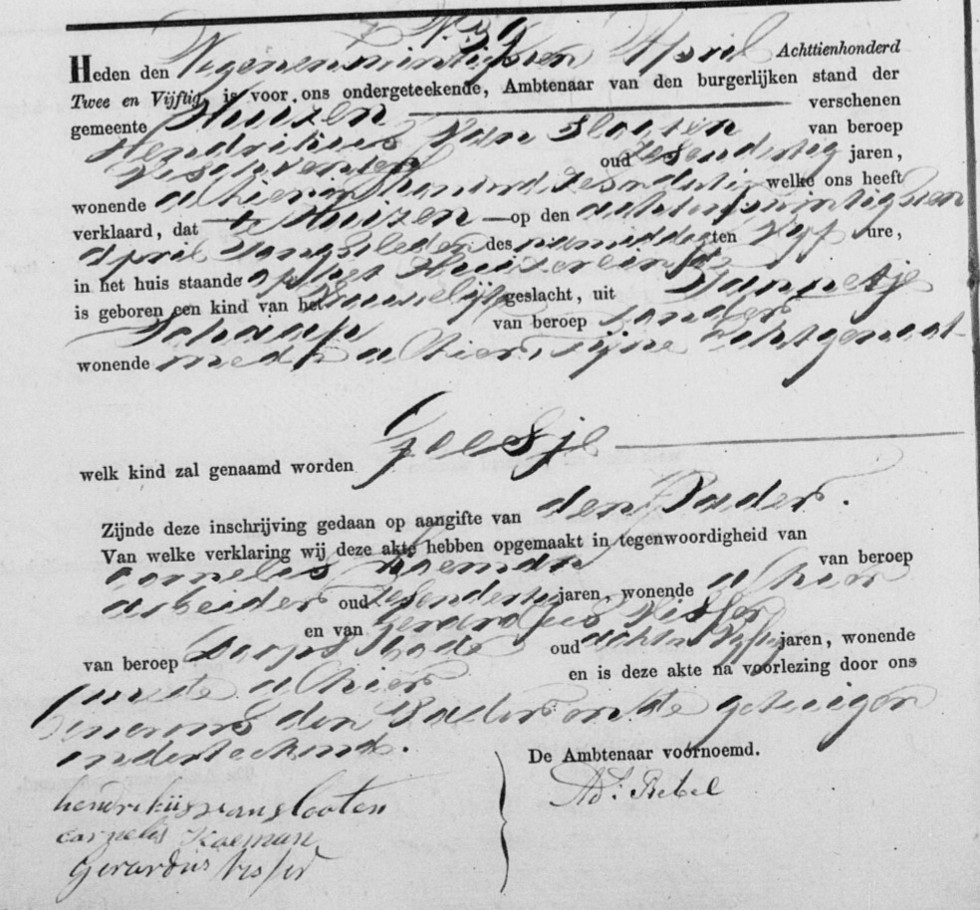 N. 39
Heden den Negenentwintigsten April Achttienhonderd
Twee en Vijftig is voor ons ondergeteekende, Ambtenaar van den burgerlijken stand der
gemeente Huizen verschenen
Hendrikus van Slooten van beroep
Vischventer oud zesendertig jaren,
wonende alhier in welke ons heeft
verklaard, dat te Huizen op den achtentwintigsten
April Jongstleden des namiddags ten Vijf ure,
in het huis staande op het Huizereinde
is geboren een kind van het Vrouwelijk geslacht, uit Jannetje
Schaap van beroep zonder
wonende mede alhier, zijne Echtgenoot
welk kind zal genaamd worden Geesje
Zijnde deze inschrijving gedaan op aangifte van den Vader.
Van welke verklaring wij deze akte hebben opgemaakt in tegenwoordigheid van
Cornelis Koeman van beroep
arbeider oud zesendertig jaren, wonende alhier
en van Gerardus Visser
van beroep Dorpsbode oud achtenvijftig jaren, wonende
mede alhier en is deze akte na voorlezing door ons
benevens den Vader en de getuigen
onderteekend.
De Ambtenaar voornoemd.
hendrikus van slooten
cornelis Koeman
Gerardus Visser
Ad. Rebel